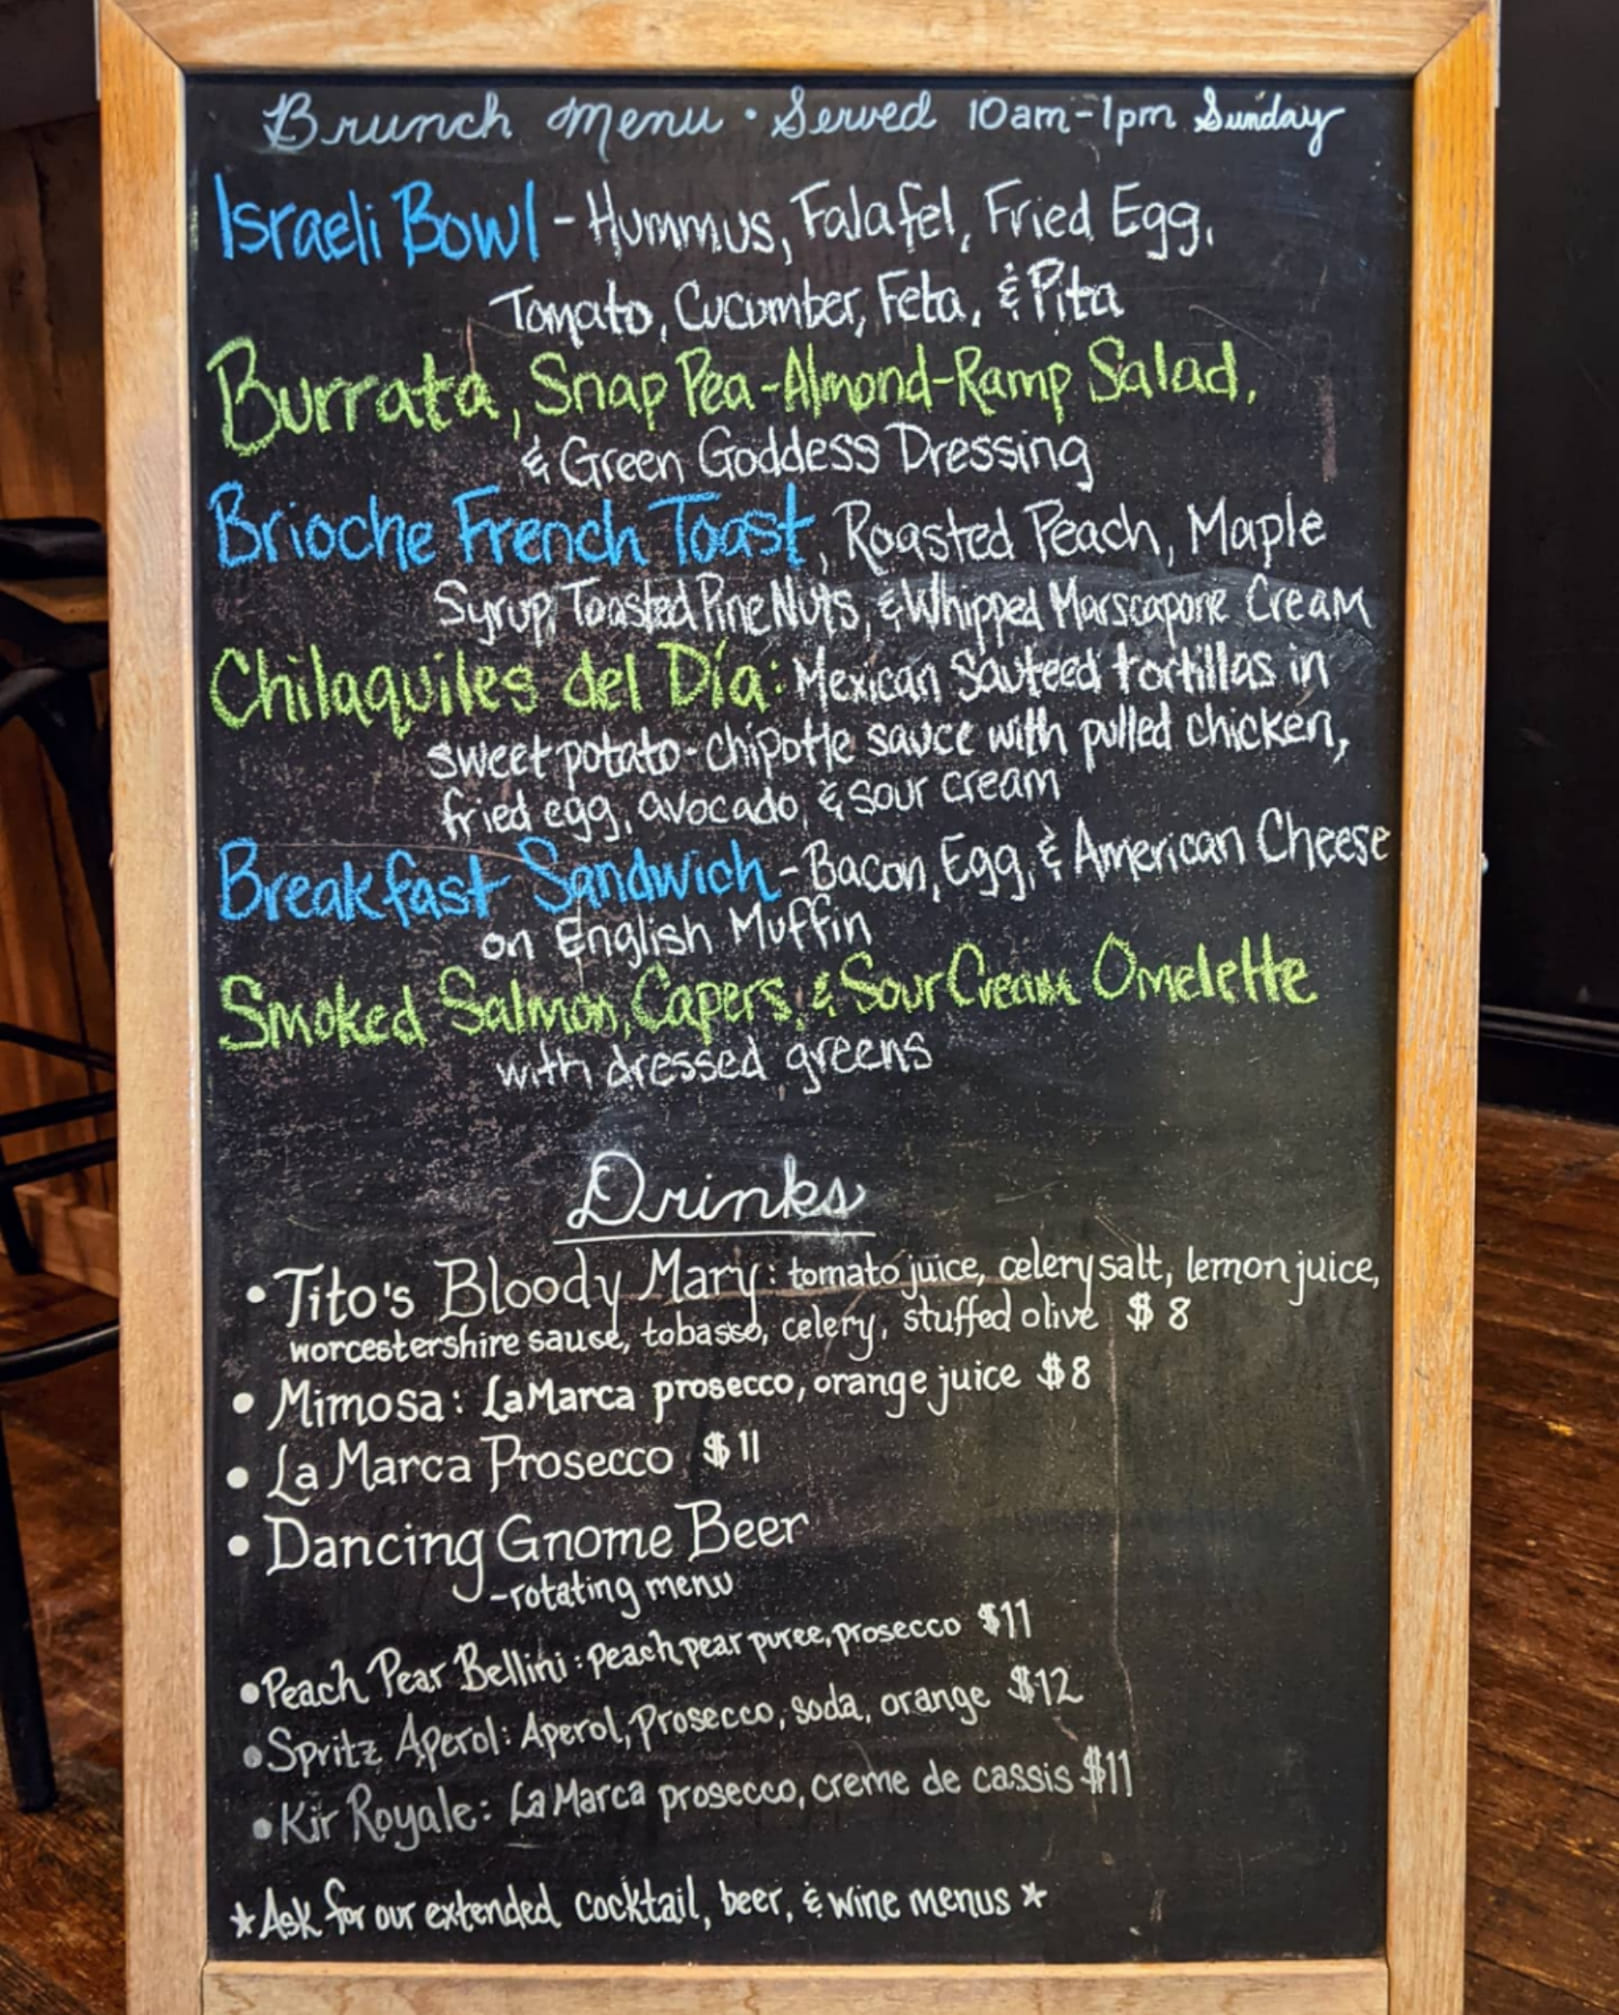 Brunch Menu · Served 10am-1pm Sunday
Israeli Bowl - Hummus, Falafel, Fried Egg,
Tomato, Cucumber, Feta, & Pita
Burrata, Snap Pea-Almond-Ramp Salad,
& Green Goddess Dressing
Brioche French Toast, Roasted Peach, Maple
Syrup, Toasted Pine Nuts, & Whipped Marscapone Cream
Chilaquiles del Día: Mexican Sauteed tortillas in
sweet potato-chipotle sauce with pulled chicken,
fried egg, avocado, & sour cream
Breakfast Sandwich - Bacon, Egg, & American Cheese
on English Muffin
Smoked Salmon, Capers, & Sour Cream Omelette
with dressed greens
Drinks
• Tito's Bloody Mary: tomato juice, celery salt, lemon juice,
worcestershire sause, tobasso, celery, stuffed olive $8
• Mimosa: LaMarca prosecco, orange juice $8
• La Marca Prosecco $11
• Dancing Gnome Beer
-rotating menu
• Peach Pear Bellini: peach pear puree, prosecco $11
• Spritz Aperol: Aperol, Prosecco, soda, orange $12
• Kir Royale: La Marca prosecco, creme de cassis $11
* Ask for our extended cocktail, beer, & wine menus *